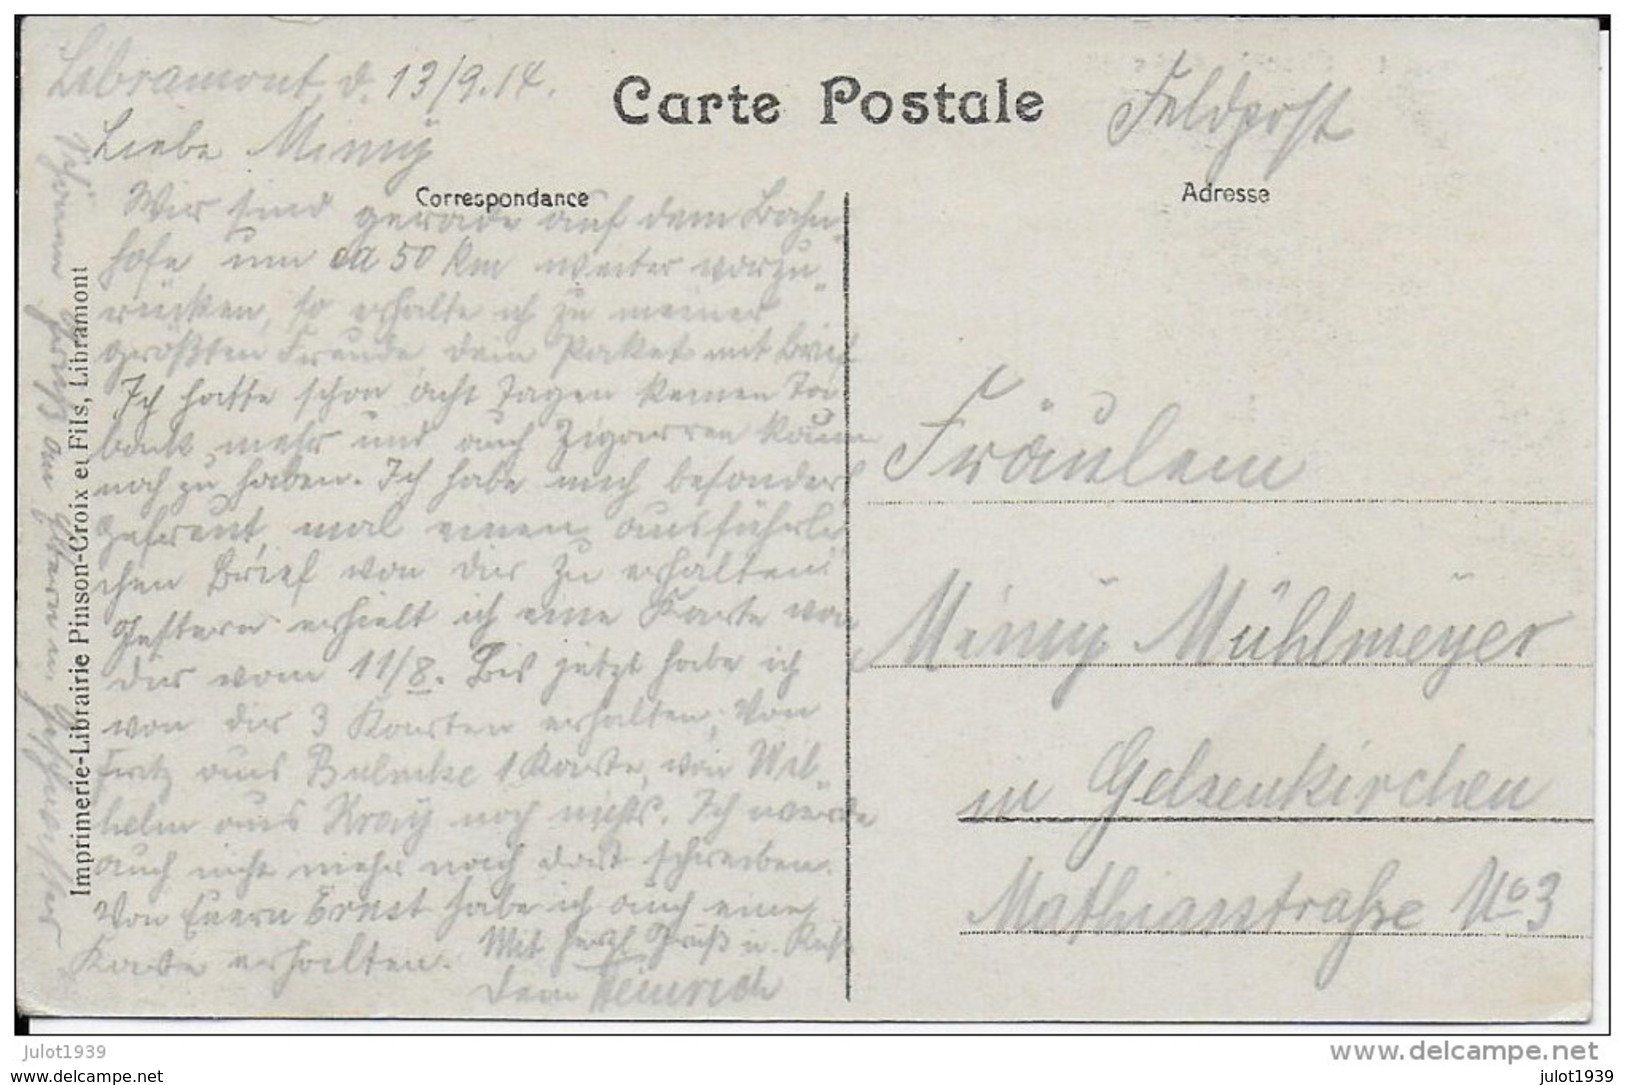 Libramont, d. 13/9.14.
Carte Postale
Feldpost
Liebe Mimy
Correspondance
Adresse
Wir sind gerade auf dem Bahn-
hofe um ca 50 km weiter vorzu-
rücken, so erhalte ich zu meiner
größten Freude dein Paket mit Brief
Ich hatte schon acht Tagen keinen Ta-
back mehr und auch Zigarren kaum
noch zu haben. Ich habe mich besonders
gefreut, mal einen ausführli-
chen Brief von dir zu erhalten.
Gestern erhielt ich eine Karte von
dir vom 11/8. Bis jetzt habe ich
von dir 3 Karten erhalten, Von
Fritz aus Bulmke 1 Karte, von Wil-
helm aus Kray noch nichts. Ich würde
auch nicht mehr nach dort schreiben.
Von Euern Ernst habe ich auch eine
Karte erhalten. Mit herzl. Gruß u. Kuß
Dein Heinrich
Schönen Gruß an Eltern u. Geschwister
Imprimerie-Librairie Pinson-Croix et Fils, Libramont
Fräulein
Mimy Mühlmeyer
in Gelsenkirchen
Mathiasstraße No 3
julot1939
www.delcampe.net
www.delcampe.net
julot1939